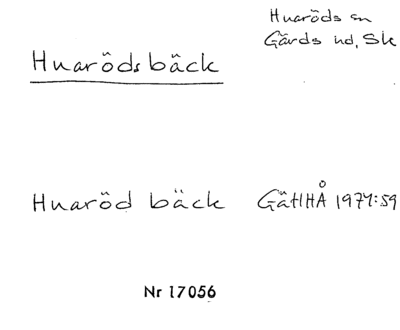 Huaröds sn
Gärds hd, Sk
Huarödsbäck
Huaröd bäck GätHHÅ 1974:59
Nr 17056